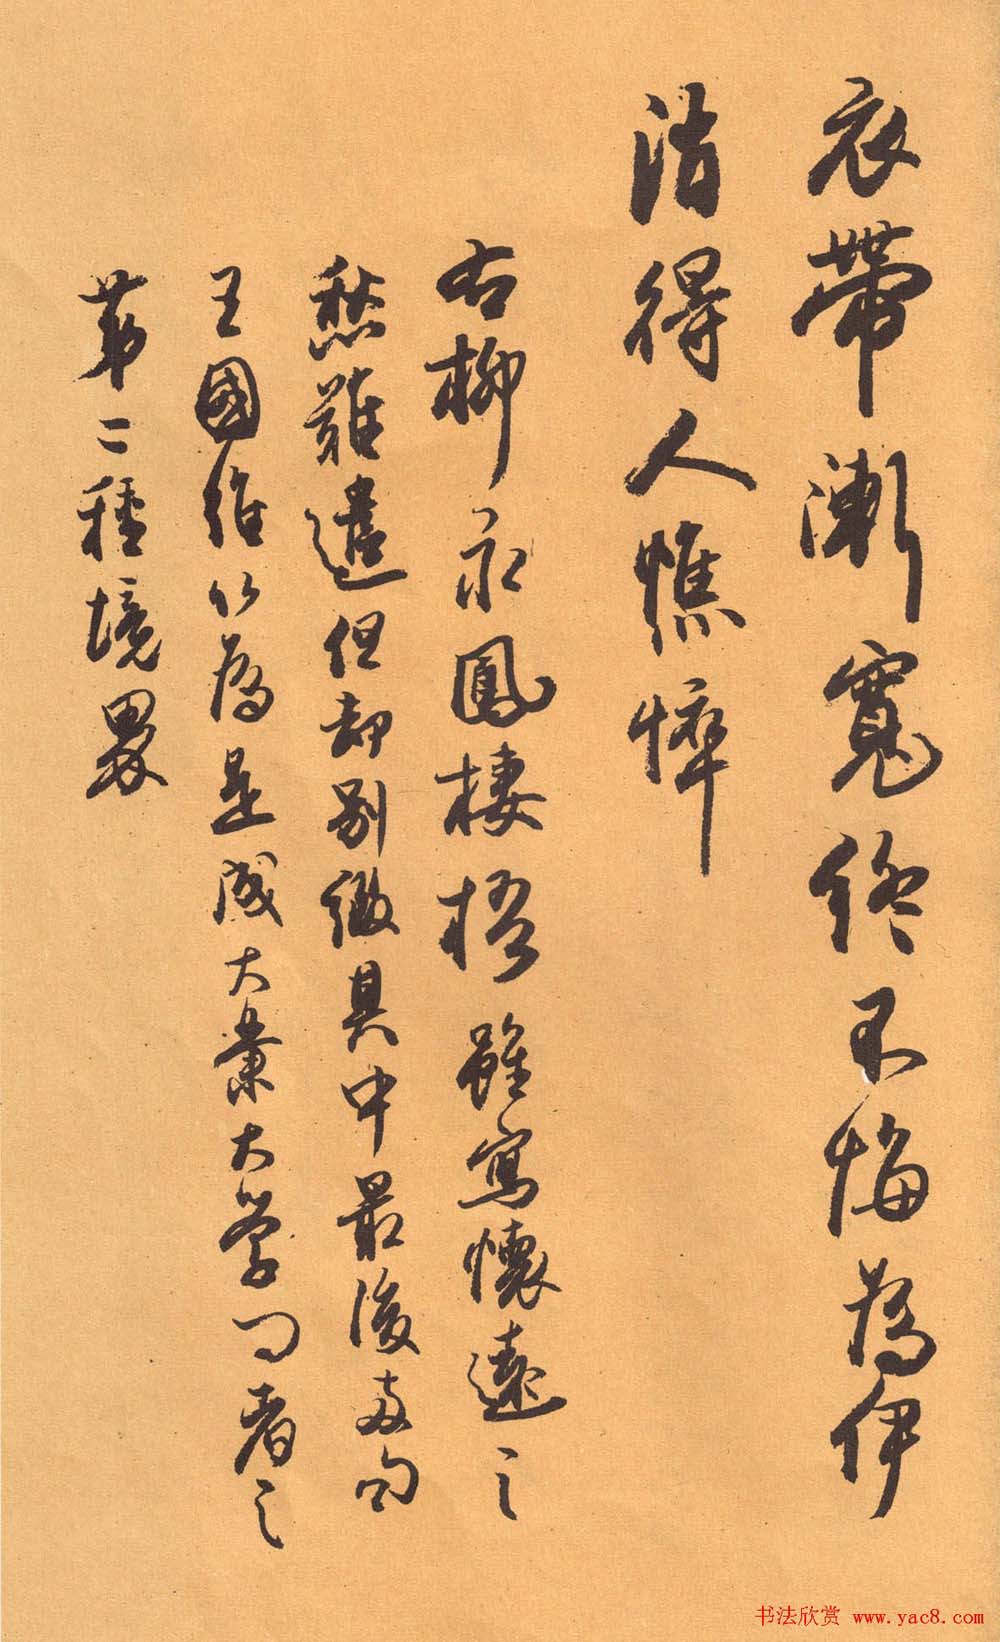 衣帶漸寬終不悔為伊
消得人憔悴
右柳永鳳棲梧雖寫懷遠之
愁難遣但却別緻其中最後兩句
王國維以為是成大業大學问者之
第二種境界
书法欣赏 www.yac8.com